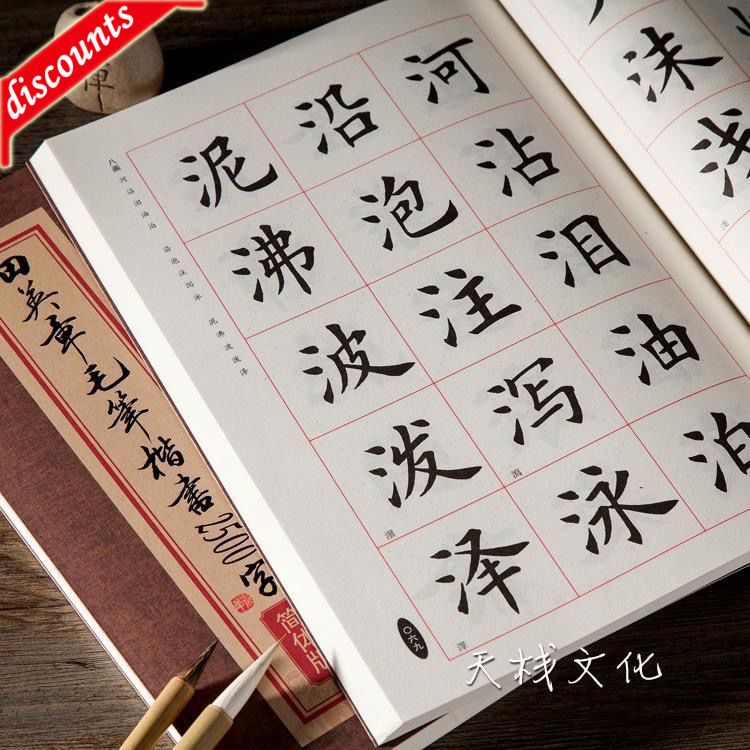 discounts
沫
浅
淺
河沾泪油泊
沿泡注泻泳
瀉
泥沸波泼泽
潑
澤
八画 河沾泪油泊 沿泡注泻泳 泥沸波泼泽
〇六九
田英章毛筆楷書2500字
简体版
天栈文化